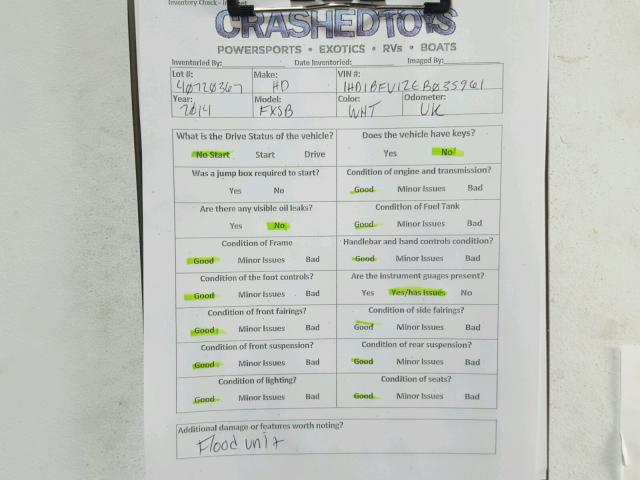 Inventory Check - 
CRASHEDTOYS
POWERSPORTS • EXOTICS • RVs • BOATS
Inventoried By: Date Inventoried: Imaged By:
Lot #: Make: VIN #:
40720367 HD 1HD1BFV12EB035961
Year: Model: Color: Odometer:
2014 FXSB WHT UK
What is the Drive Status of the vehicle? Does the vehicle have keys?
No Start Start Drive Yes No
Was a jump box required to start? Condition of engine and transmission?
Yes No Good Minor Issues Bad
Are there any visible oil leaks? Condition of Fuel Tank
Yes No Good Minor Issues Bad
Condition of Frame Handlebar and hand controls condition?
Good Minor Issues Bad Good Minor Issues Bad
Condition of the foot controls? Are the instrument guages present?
Good Minor Issues Bad Yes Yes/has issues No
Condition of front fairings? Condition of side fairings?
Good Minor Issues Bad Good Minor Issues Bad
Condition of front suspension? Condition of rear suspension?
Good Minor Issues Bad Good Minor Issues Bad
Condition of lighting? Condition of seats?
Good Minor Issues Bad Good Minor Issues Bad
Additional damage or features worth noting?
Flood unit